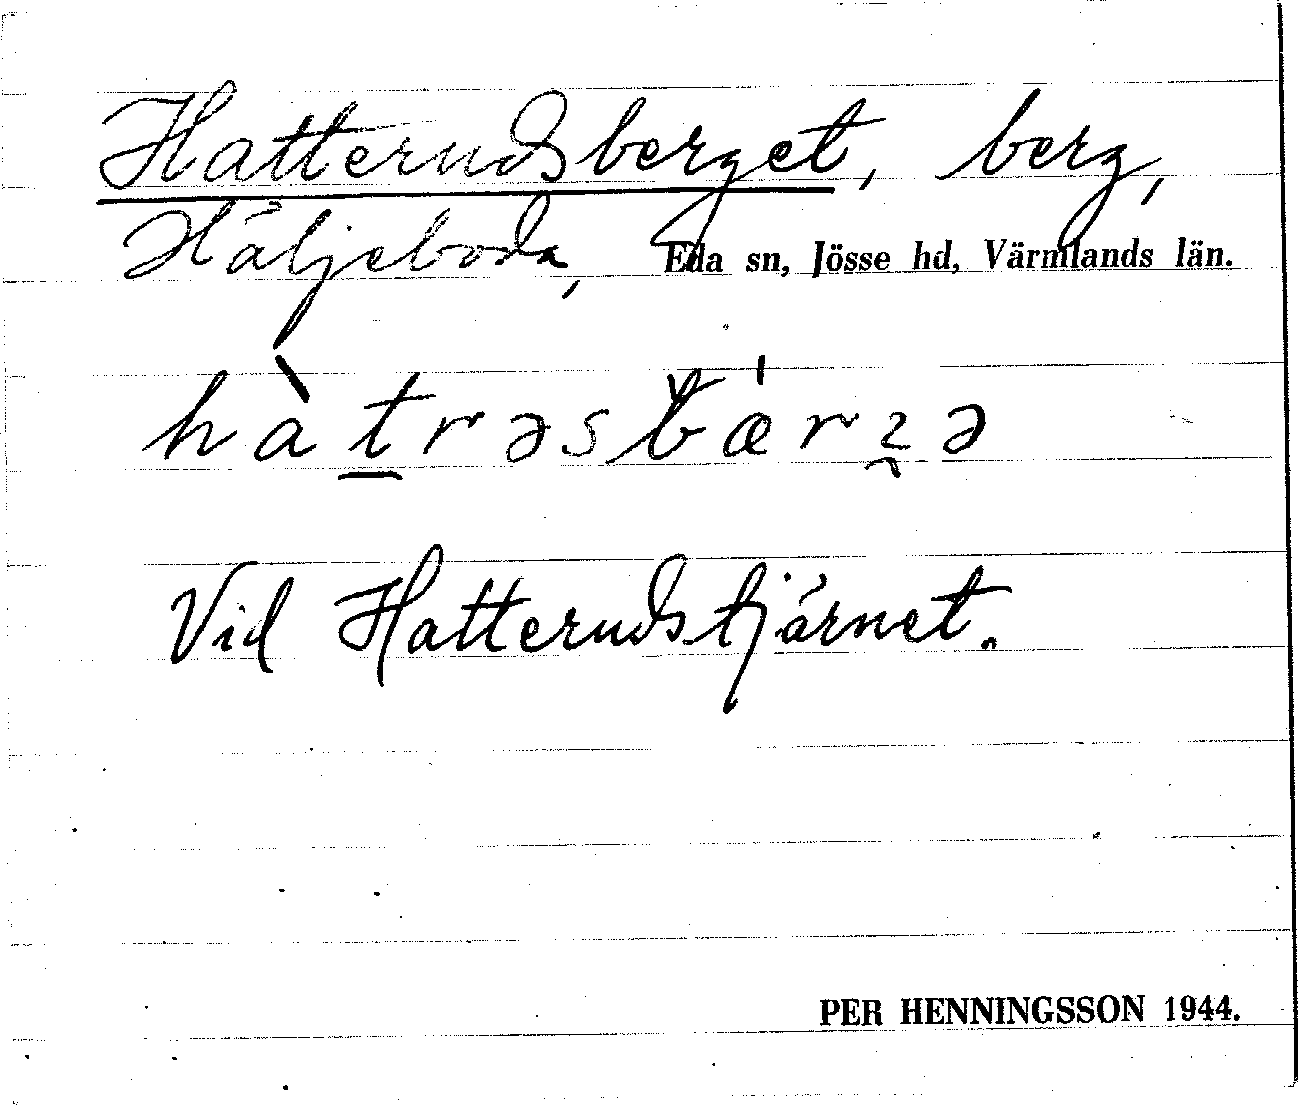 Hatterudsberget, berg,
Häljeboda, Eda sn, Jösse hd, Värmlands län.
hàt̲rəsbǽrʐə
Vid Hatterudstjärnet.
PER HENNINGSSON 1944.